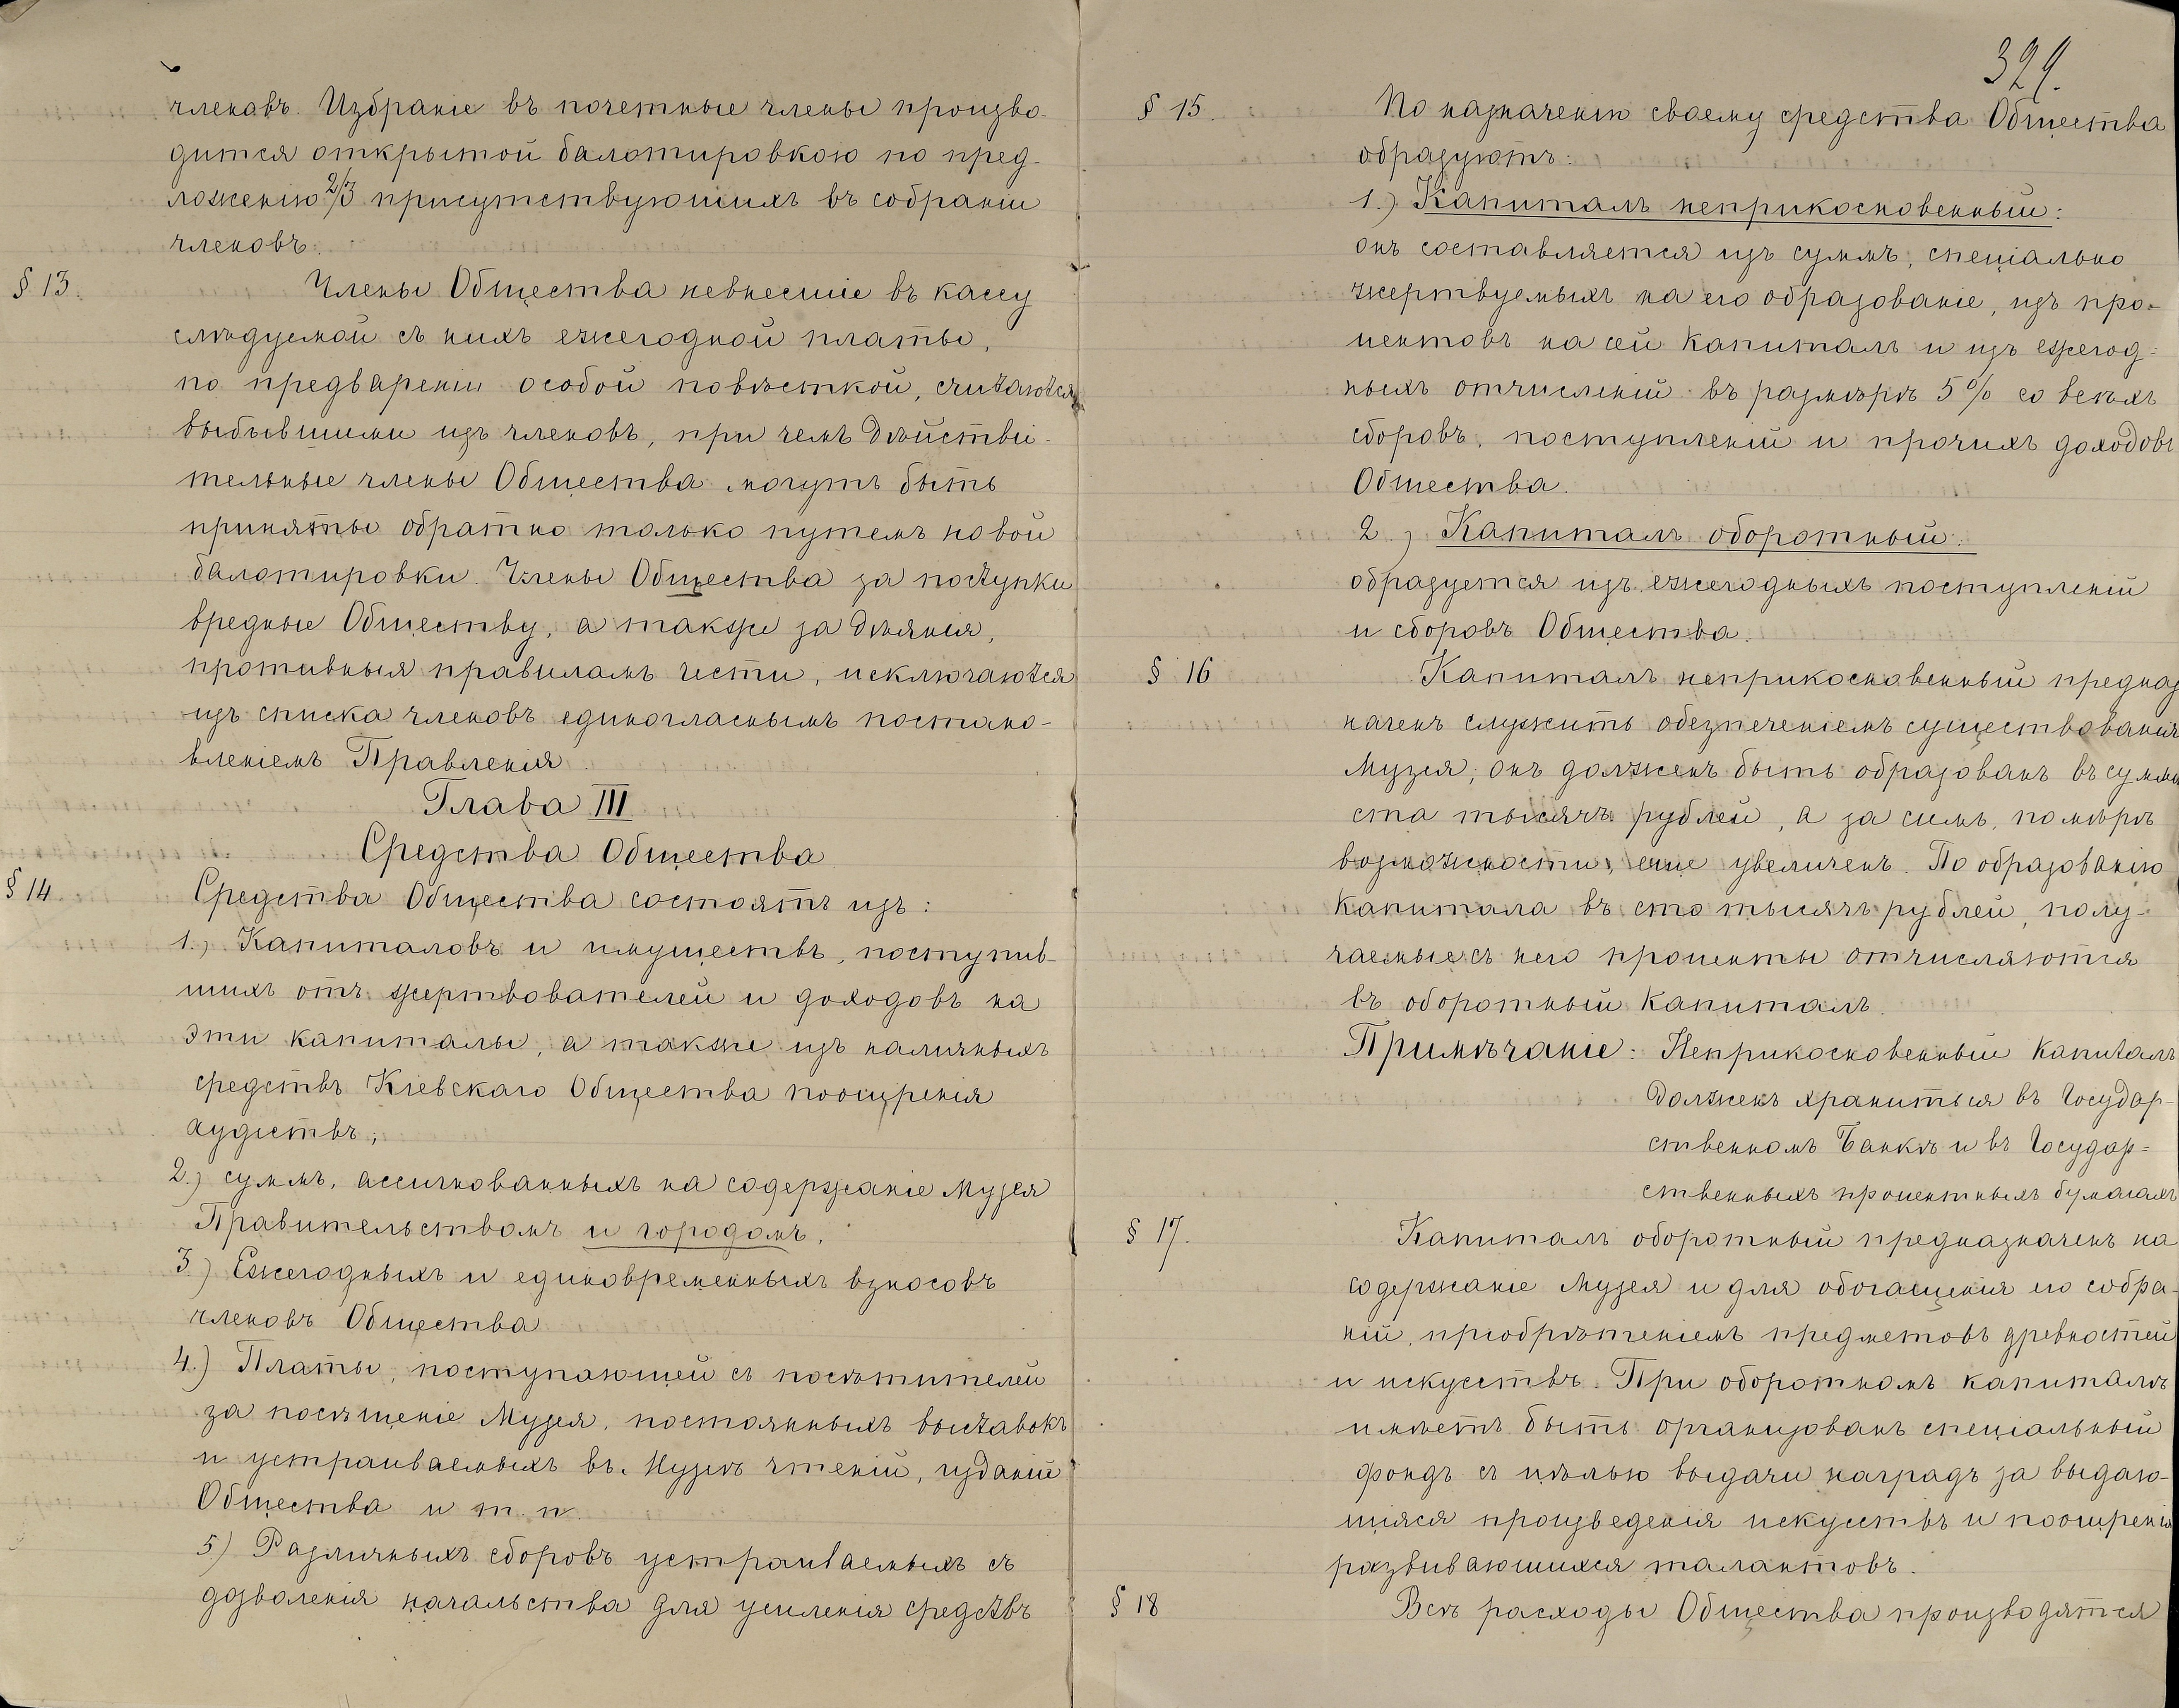 членовъ. Избраніе въ почетные члены произво-
дится открытой балотировкою по пред-
ложенію 2/3 присутствующихъ въ собраніи
членовъ.
§ 13. Члены Общества невнесшіе въ кассу
слѣдуемой съ нихъ ежегодной платы,
по предвареніи особой повѣсткой, считаются
выбывшими изъ членовъ, при чемъ дѣйстви-
тельные члены Общества могутъ быть
приняты обратно только путемъ новой
балотировки. Члены Общества за поступки
вредные Обществу, а также за дѣянія,
противныя правиламъ чести, исключаются
изъ списка членовъ единогласнымъ постано-
вленіемъ Правленія.
Глава III
Средства Общества
§ 14. Средства Общества состоятъ изъ:
1.) Капиталовъ и имуществъ, поступив-
шихъ отъ жертвователей и доходовъ на
эти капиталы, а также изъ наличныхъ
средствъ Кіевскаго Общества поощренія
художествъ;
2.) суммъ, ассигнованныхъ на содержаніе Музея
Правительствомъ и городомъ.
3.) Ежегодныхъ и единовременныхъ взносовъ
членовъ Общества
4.) Платы, поступающей съ посѣтителей
за посѣщеніе Музея, постоянныхъ выставокъ
и устраиваемыхъ въ Музеѣ чтеній, изданій
Общества и т. п.
5.) Различныхъ сборовъ устраиваемыхъ съ
дозволенія начальства для усиленія средствъ
329.
§ 15. По назначенію своему средства Общества
образуютъ:
1.) Капиталъ неприкосновенный:
онъ составляется изъ суммъ, спеціально
жертвуемыхъ на его образованіе, изъ про-
центовъ на сей капиталъ и изъ ежегод-
ныхъ отчисленій въ размѣрѣ 5% со всѣхъ
сборовъ, поступленій и прочихъ доходовъ
Общества.
2.) Капиталъ оборотный:
образуется изъ ежегодныхъ поступленій
и сборовъ Общества.
§ 16 Капиталъ неприкосновенный предназ
наченъ служить обезпеченіемъ существованія
Музея; онъ долженъ быть образованъ въ суммѣ
ста тысячъ рублей, а за симъ, по мѣрѣ
возможности, еще увеличенъ. По образованію
капитала въ сто тысячъ рублей, полу-
чаемые съ него проценты отчисляются
въ оборотный капиталъ.
Примѣчаніе: Неприкосновенный капиталъ
долженъ храниться въ Государ-
ственномъ Банкѣ и въ Государ=
ственныхъ процентныхъ бумагахъ
§ 17. Капиталъ оборотный предназначенъ на
содержаніе Музея и для обогащенія его собра-
ній, пріобрѣтеніемъ предметовъ древностей
и искусствъ. При оборотномъ капиталѣ
имѣетъ быть организованъ спеціальный
фондъ съ цѣлью выдачи наградъ за выдаю-
щіяся произведенія искусствъ и поощренія
развивающихся талантовъ.
§ 18 Всѣ расходы Общества производятся